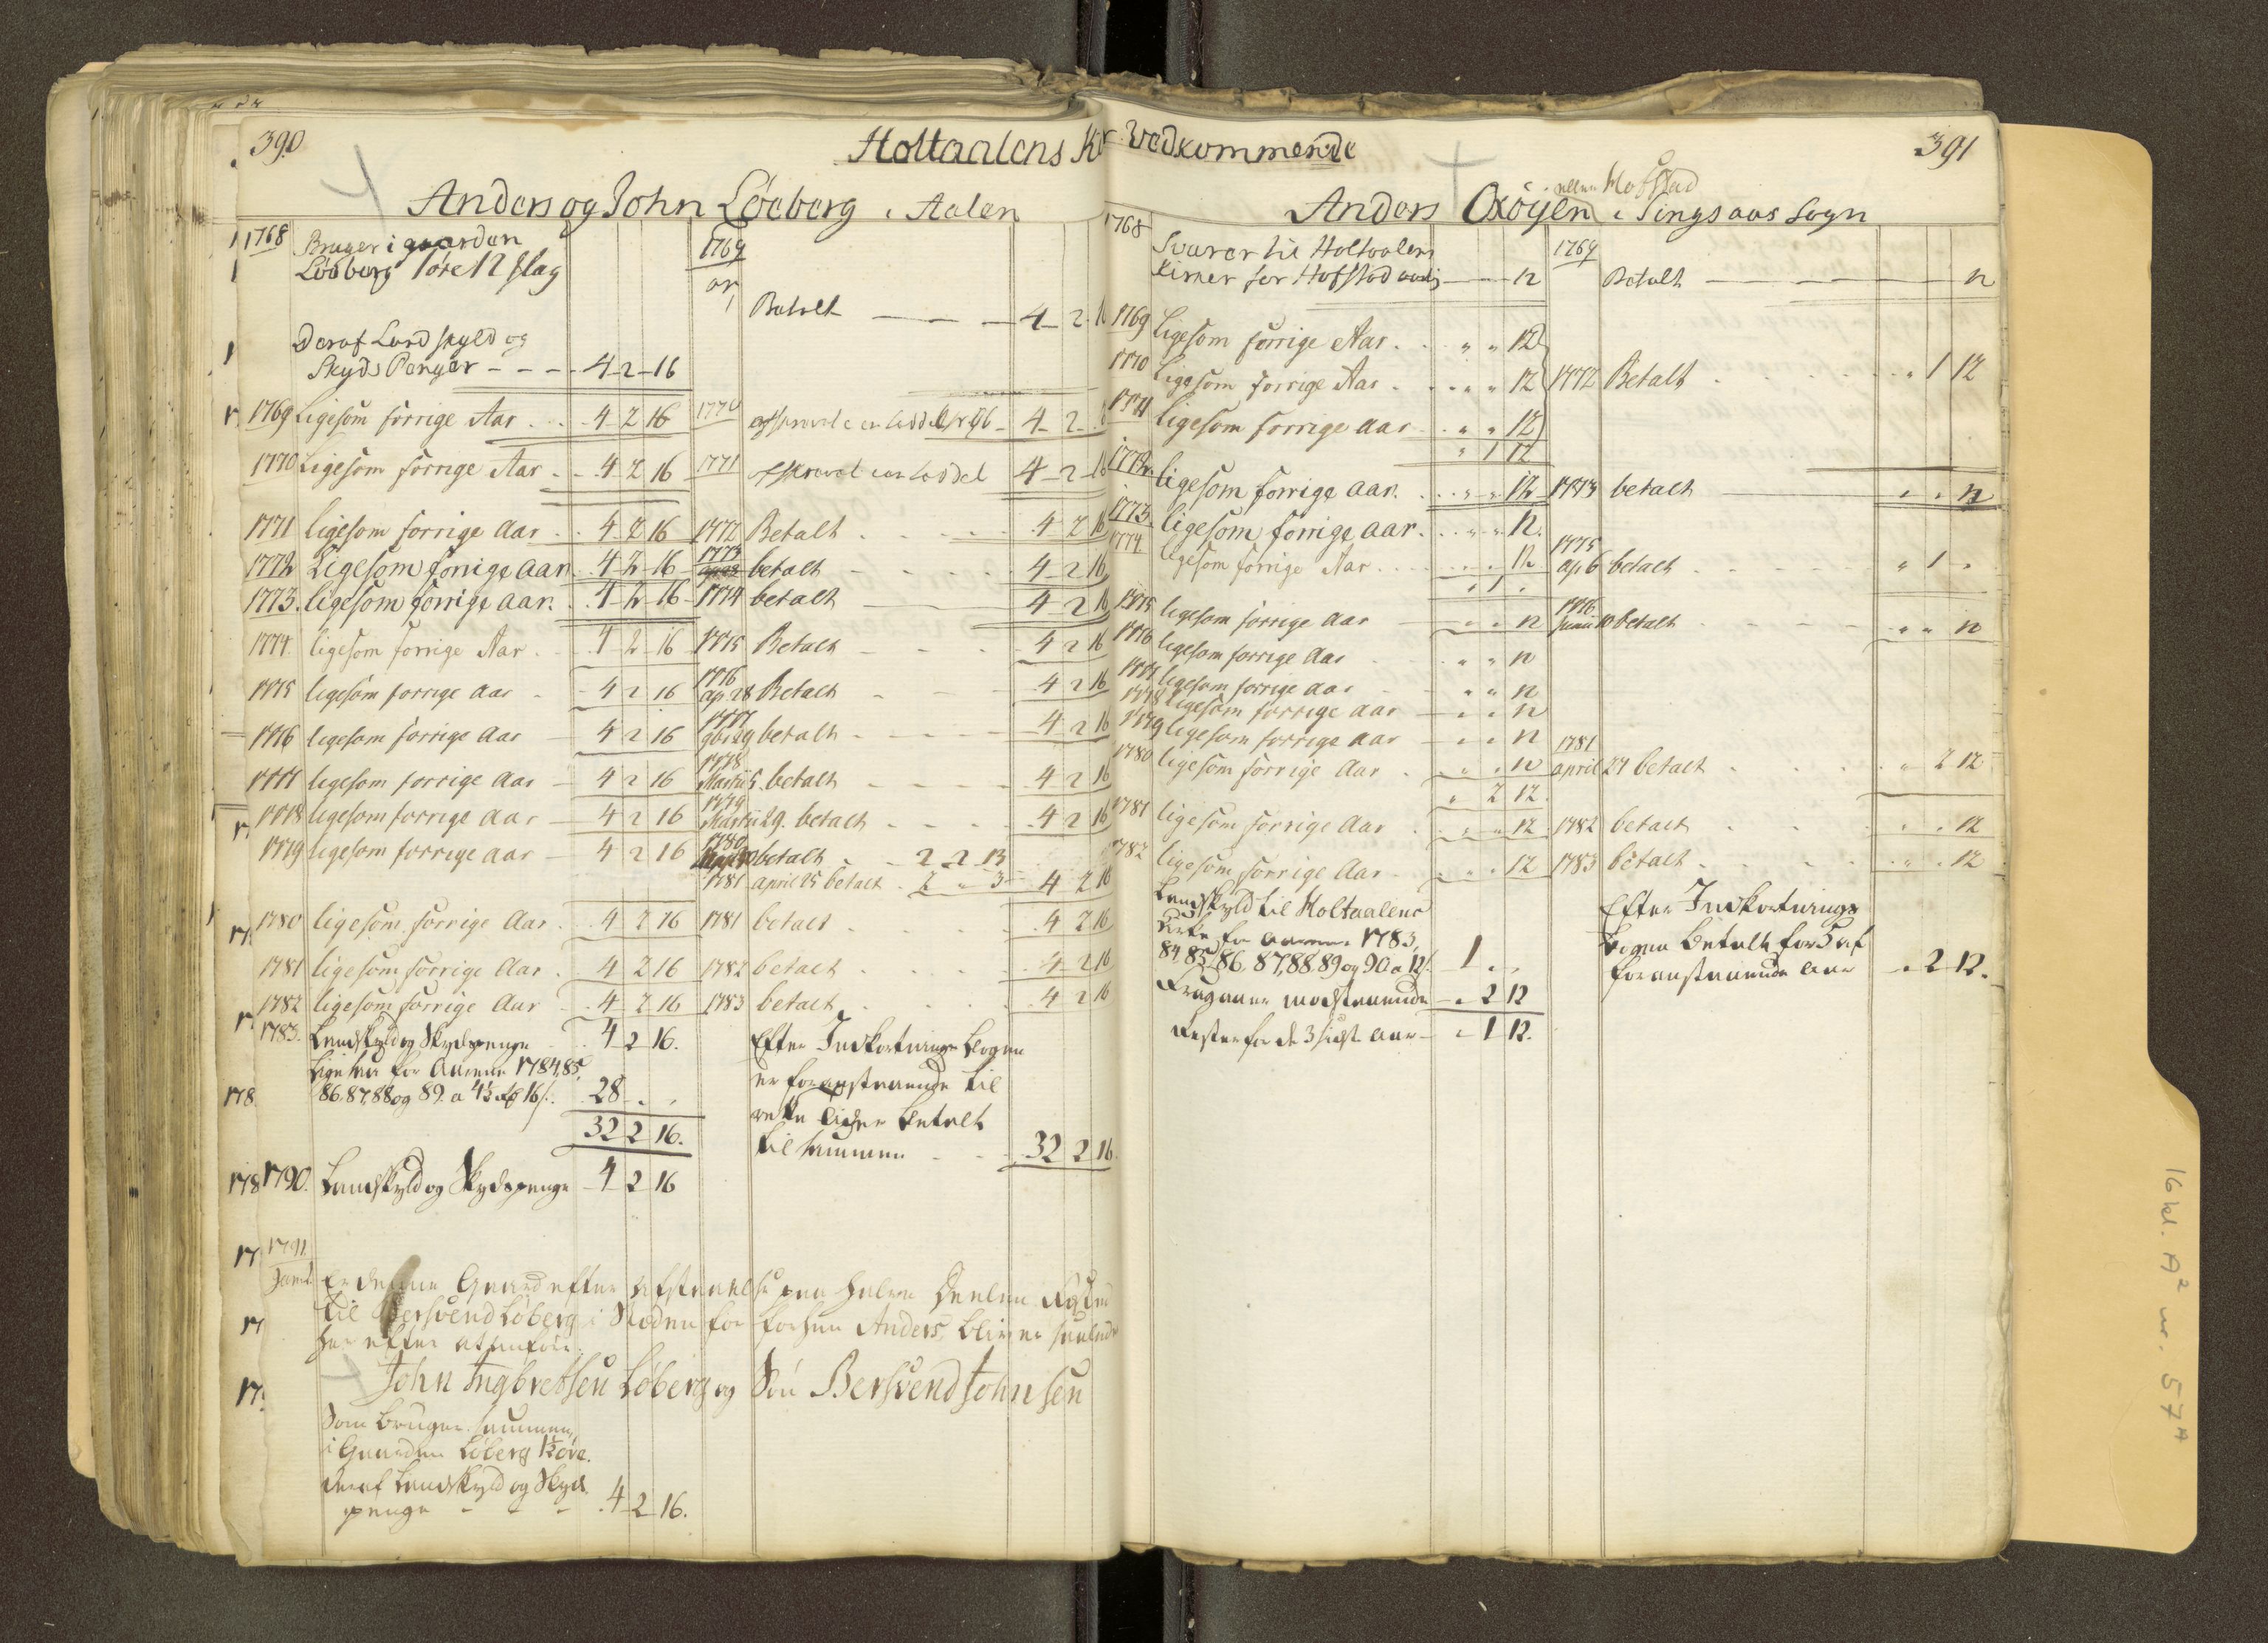 390
Holtaalens Kir
Anders og John Løeberg i Aalen
1768 Bruger i gaarden
Løeberg 1 øre 12 slag
1769
Betalt — — — 4 2 16
Deraf Landskyld og
Skyds Penger - - - 4 2 16
1769 Ligesom forrige Aar . . 4 2 16 1770 4 2
1770 Ligesom forrige Aar . . 4 2 16 1771 4 2 16
1771 ligesom forrige Aar . . 4 2 16 1772 Betalt . . . 4 2 16
1772 Ligesom forrige aar . 4 2 16 1773 betalt . . . 4 2 16
1773. ligesom forrige aar. . 4 2 16 1774 betalt — 4 2 16
1774. ligesom forrige Aar . . 4 2 16 1775 Betalt - - . 4 2 16
1775 ligesom forrige aar - 4 2 16 1776 ap. 28 Betalt - - 4 2 16
1776 ligesom forrige aar — 4 2 16 1777 9br 29 betalt - - - 4 2 16
1777 ligesom forrige aar — 4 2 16 1778 Martii 5. betalt - - - 4 2 16
1778 ligesom forrige aar — 4 2 16 1779 Martii 29. betalt - - - 4 2 16
1779 ligesom forrige aar — 4 2 16 1780 betalt - - 2 2 13
1781 april 25 betalt . 2 " 3 4 2 16
1780 ligesom forrige Aar . . 4 2 16 1781 betalt . . . 4 2 16
1781 ligesom forrige Aar . 4 2 16 1782 betalt . . . 4 2 16
1782 ligesom forrige Aar . 4 2 16 1783 betalt . . . 4 2 16
1783. Landskyld og Skydspenge . 4 2 16.
Lige saa for Aarene 1784, 85,
86, 87, 88 og 89. a 28 . .
32 2 16.
Efter Indkortnings Bogen
er foranstaaende til
rette tider betalt
til sammen - - . 32 2 16.
1790. Landskyld og Skydspenge 4 2 16
1791.
Er denne Gaard efter afstaaelse paa halve Deelen
til Bersvend Løberg i Steden for forhen Anders, bliver saaledes
her efter at anføre.
John Ingbretsen Løberg og Søn Bersvend Johnsen
Som bruger sammen
i Gaarden Løberg 1½ øre.
deraf Landskyld og Skyds
penge - - - . 4 2 16.
Vedkommende
391
eller Hofstad
Anders Oxøyen i Singsaas Sogn
1768 Svarer til Holtaalens
Kirker for Hofstad — 12
1769 Betalt — — — 12
1769 Ligesom forrige Aar . . " " 12
1770 Ligesom forrige Aar . . " " 12 1772 Betalt . . . " 1 12
1771 Ligesom forrige aar . " " 12
" 1 12
1772. ligesom forrige aar. . . " " 12 1773 betalt — " " 12
1773. ligesom forrige aar. . . " " 12.
1774. ligesom forrige Aar . . . " " 12 1775 ap. 6 betalt . . . " 1 "
" 1 "
1775 ligesom forrige aar — " " 12 1776. Junii 10 betalt . . - " " 12
1776 ligesom forrige aar . " " 12
1777 ligesom forrige aar - " " 12
1778 ligesom forrige aar — " " 12
1779 ligesom forrige aar — " " 12
1780 ligesom forrige Aar . " " 12 1781 april 27 betalt . . . " 2 12
" 2 12.
1781 ligesom forrige Aar . " " 12 1782 betalt . . . " " 12
1782 ligesom forrige Aar . " " 12 1783 betalt . . . " " 12
Landskyld til Holtaalens
Kirke for Aarene 1783,
84, 85, 86, 87, 88, 89 og 90 a 12 1 " "
Efter Indkortnings
Bogen betalt for 5 af
foranstaaende Aar . 2 12.
Fragaaer modstaaende — . 2 12
Rester for de 3 sidste Aar — " 1 12.
16 kl. A² nr. 57ᴬ